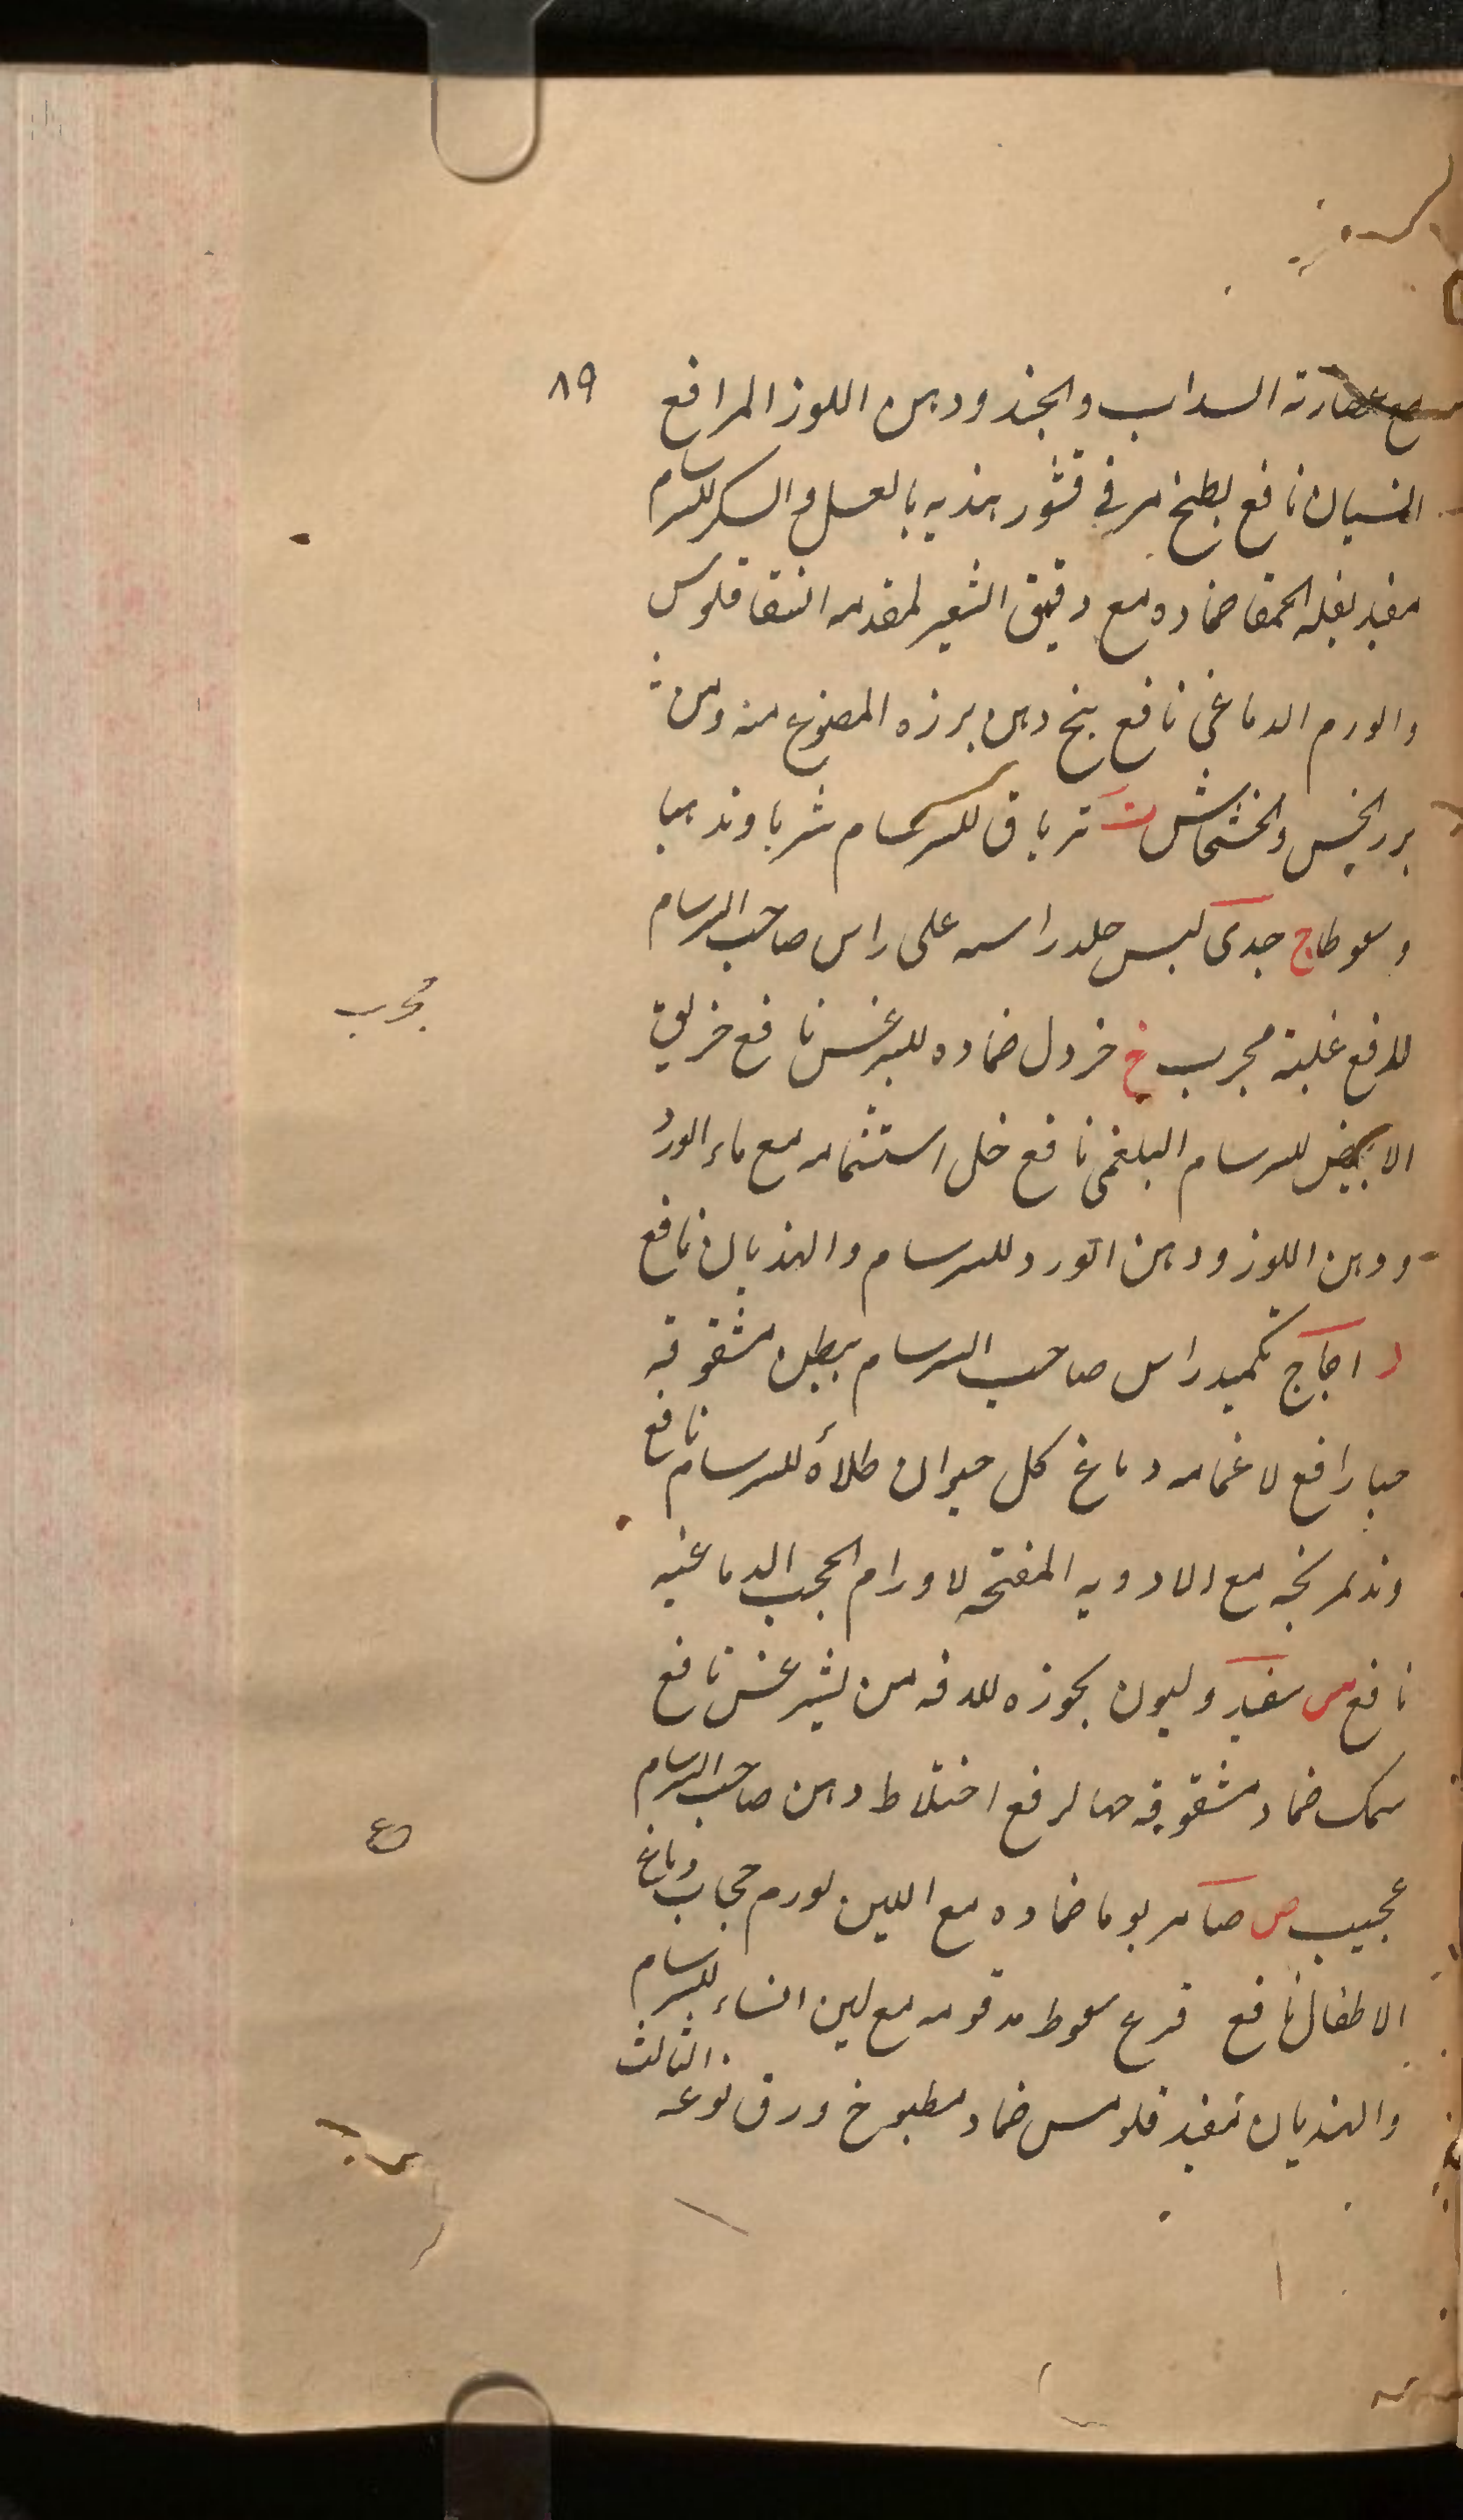 ۸۹
مع عصارته السداب والجند ودهن اللوز المر افع
النسیان نافع بطیخ مر فی قشور هندبه بالعسل والسکر للسرسام
مفید بقله الحمقا ضماده مع دقیق الشعیر لمقدمه السقاقلوس
والورم الدماغی نافع بنج دهن برزه المصنوع منه ومن
بزر الخس والخشخاش ت تریاق للسرسام شربا وتدهینا
وسعوطا ج جدی لبس جلد راسه علی راس صاحب السرسام
لدفع غلبته مجرب خ خردل ضماده للیثرغس نافع خربق
مجرب
الابیض للسرسام البلغمی نافع خل استشمامه مع ماء الورد
ودهن اللوز ودهن الورد للسرسام والهذیان نافع
د دجاج تکمید راس صاحب السرسام ببطن مشقوقه
حیا رافع لاغمامه دماغ کل حیوان طلاءً للسرسام نافع
مع الادویه المفتحه لاورام الحجب الدماغیه
نافع س سفید ولیون بخوره للدفه من لیثرغس نافع
سمک ضماد مشقوقه حیا لرفع اختلاط ذهن صاحب السرسام
عجیب ص صامر یوما ضماده مع اللبن لورم حجاب دماغ
الاطفال نافع قرع سعوط مدقوقه مع لبن النساء للسرسام
والهذیان مفید قلومس ضماد مطبوخ ورق نوعه الثالث